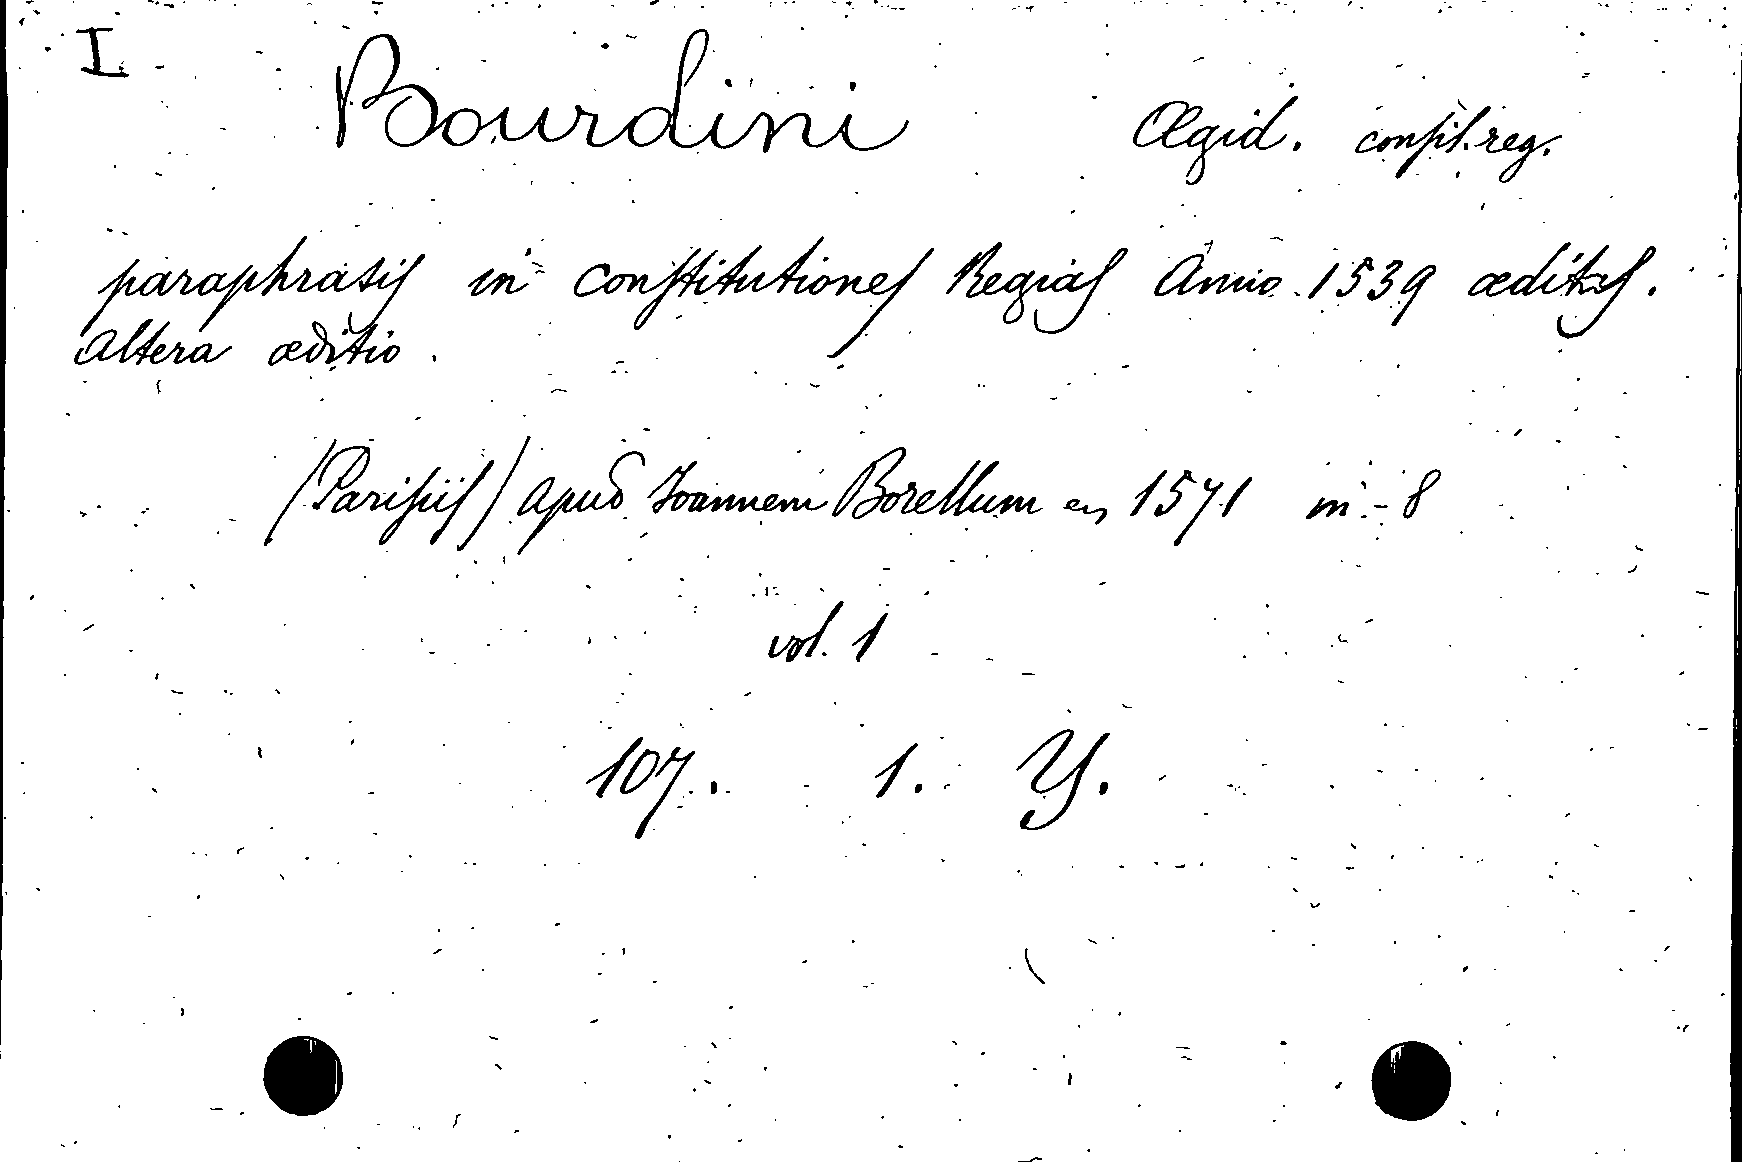 I
Bourdini Ægid. consil. reg.
paraphrasis in constitutiones Regias Anno 1539 æditas.
Altera æditio.
(Parisiis) apud Ioannem Borellum en 1571 in-8
vol. 1
107. 1. Y.